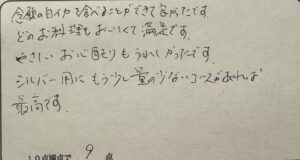 念願の白イカを食べることができて良かったです
どのお料理もおいしくて満足です。
やさしいお心配りもうれしかったです。
シルバー用にもう少し量の少ないコースがあれば
最高です。
10点満点で 9 点